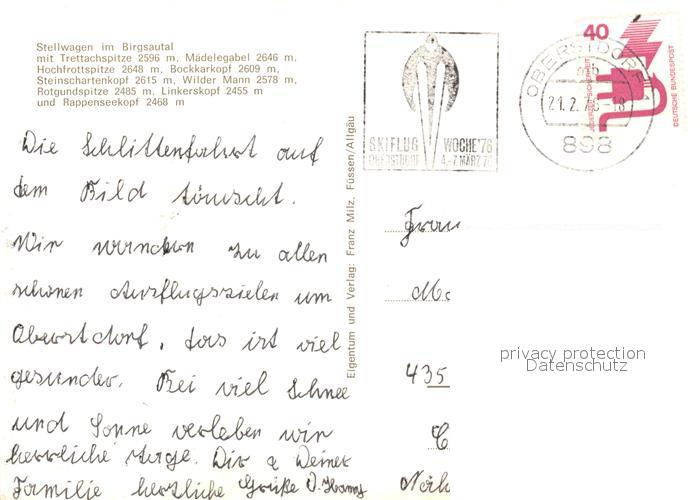 Stellwagen im Birgsautal
mit Trettachspitze 2596 m, Mädelegabel 2646 m,
Hochfrottspitze 2648 m, Bockkarkopf 2609 m,
Steinschartenkopf 2615 m, Wilder Mann 2578 m,
Rotgundspitze 2485 m, Linkerskopf 2455 m
und Rappenseekopf 2468 m
SKIFLUG WOCHE'76
OBERSTDORF 4.-7. MÄRZ 76
OBERSTDORF
mb
21.2.76-18
898
40
JEDERZEIT SICHERHEIT
DEUTSCHE BUNDESPOST
Die Schlittenfahrt auf
dem Bild täuscht.
Wir wandern zu allen
schönen Ausflugszielen um
Oberstdorf, das ist viel
gesünder. Bei viel Schnee
und Sonne verleben wir
herrliche Tage. Dir & Deiner
Familie herzliche Grüße
Eigentum und Verlag: Franz Milz, Füssen/Allgäu
Frau
435
privacy protection
Datenschutz